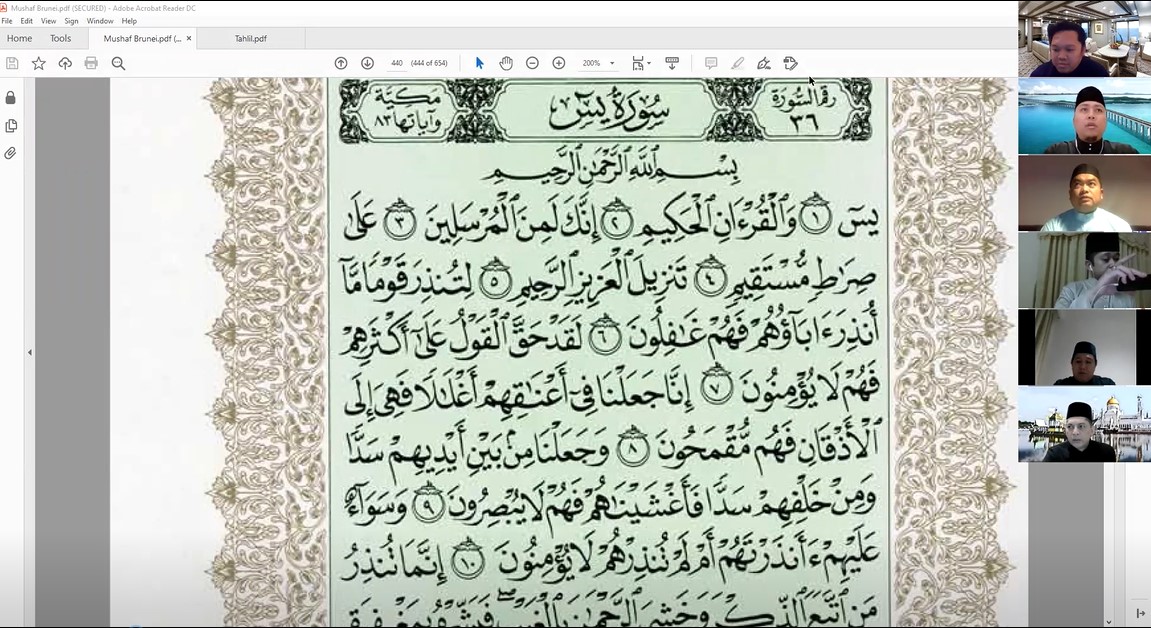 Mushaf Brunei.pdf (SECURED) - Adobe Acrobat Reader DC
File Edit View Sign Window Help
Home Tools Mushaf Brunei.pdf (... × Tahlil.pdf
440 (444 of 654) 200%
رقم السورة ٣٦
سُورَةُ يسٓ
مكيّة وآياتها ٨٣
بِسْمِ ٱللَّهِ ٱلرَّحْمَٰنِ ٱلرَّحِيمِ
يسٓ ١ وَٱلْقُرْءَانِ ٱلْحَكِيمِ ٢ إِنَّكَ لَمِنَ ٱلْمُرْسَلِينَ ٣ عَلَىٰ
صِرَٰطٍ مُّسْتَقِيمٍ ٤ تَنزِيلَ ٱلْعَزِيزِ ٱلرَّحِيمِ ٥ لِتُنذِرَ قَوْمًا مَّآ
أُنذِرَ ءَابَآؤُهُمْ فَهُمْ غَٰفِلُونَ ٦ لَقَدْ حَقَّ ٱلْقَوْلُ عَلَىٰٓ أَكْثَرِهِمْ
فَهُمْ لَا يُؤْمِنُونَ ٧ إِنَّا جَعَلْنَا فِىٓ أَعْنَٰقِهِمْ أَغْلَٰلًا فَهِىَ إِلَى
ٱلْأَذْقَانِ فَهُم مُّقْمَحُونَ ٨ وَجَعَلْنَا مِنۢ بَيْنِ أَيْدِيهِمْ سَدًّا
وَمِنْ خَلْفِهِمْ سَدًّا فَأَغْشَيْنَٰهُمْ فَهُمْ لَا يُبْصِرُونَ ٩ وَسَوَآءٌ
عَلَيْهِمْ ءَأَنذَرْتَهُمْ أَمْ لَمْ تُنذِرْهُمْ لَا يُؤْمِنُونَ ١٠ إِنَّمَا تُنذِرُ
مَنِ ٱتَّبَعَ ٱلذِّكْرَ وَخَشِىَ ٱلرَّحْمَٰنَ بِٱلْغَيْبِ ۖ فَبَشِّرْهُ بِمَغْفِرَةٍ